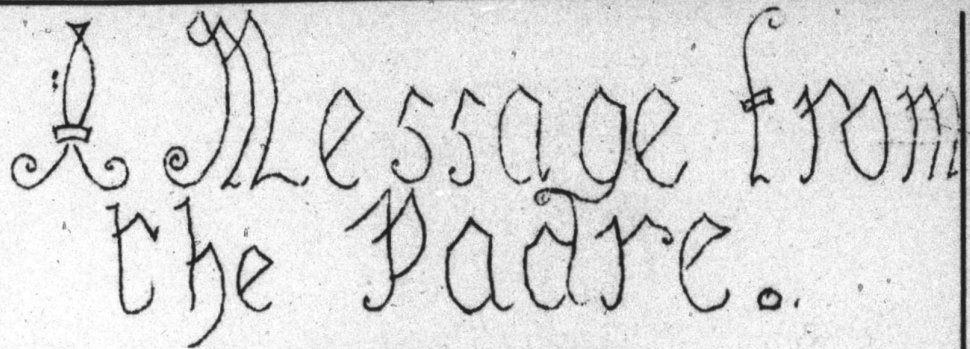 A Message from
the Padre.